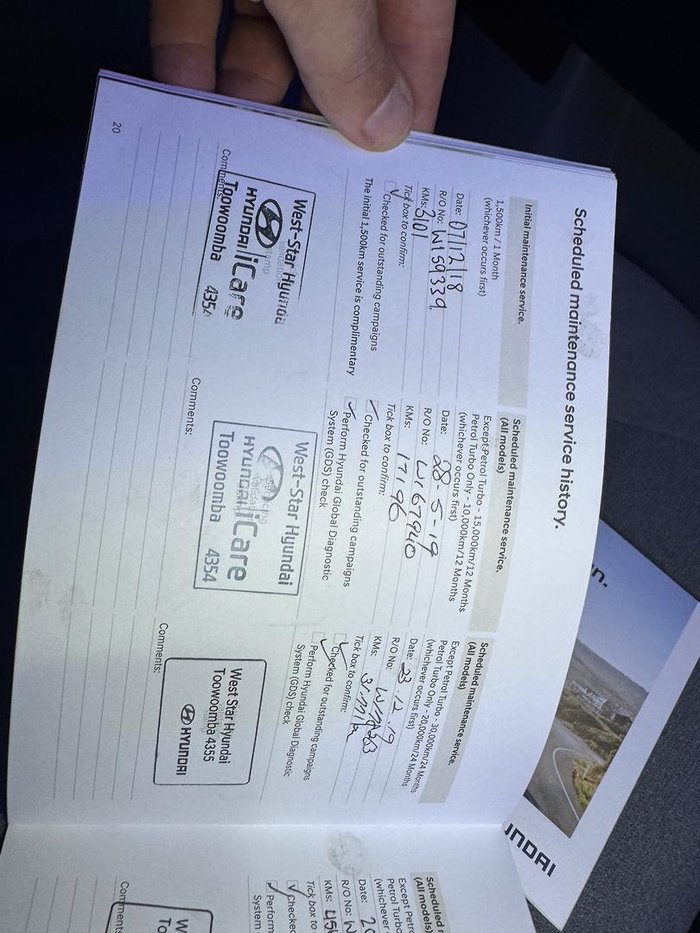 Scheduled maintenance service history.
Initial maintenance service.
1,500km / 1 Month
(whichever occurs first)
Date: 07/12/18
R/O No: W159339
KMs: 3101
Tick box to confirm:
Checked for outstanding campaigns
The initial 1,500km service is complimentary
West-Star Hyundai
HYUNDAI iCare
Toowoomba 4354
Comments:
Scheduled maintenance service.
(All models)
Except Petrol Turbo - 15,000km/12 Months
Petrol Turbo Only - 10,000km/12 Months
(whichever occurs first)
Date: 28-5-19
R/O No: W167940
KMs: 17196
Tick box to confirm:
Checked for outstanding campaigns
Perform Hyundai Global Diagnostic
System (GDS) check
West-Star Hyundai
HYUNDAI iCare
Toowoomba 4354
Comments:
Scheduled maintenance service.
(All models)
Except Petrol Turbo - 30,000km/24 Months
Petrol Turbo Only - 20,000km/24 Months
(whichever occurs first)
Date: 23.12.19
R/O No:
KMs:
Tick box to confirm:
Checked for outstanding campaigns
Perform Hyundai Global Diagnostic
System (GDS) check
West Star Hyundai
Toowoomba 4355
HYUNDAI
Comments:
20
Scheduled
(All models)
Except Pet
Petrol Turbo
(whichever
Date: 2
R/O No: W
KMs: 45
Tick box to
Checke
Perform
System
W
To
Comment
n.
UNDAI